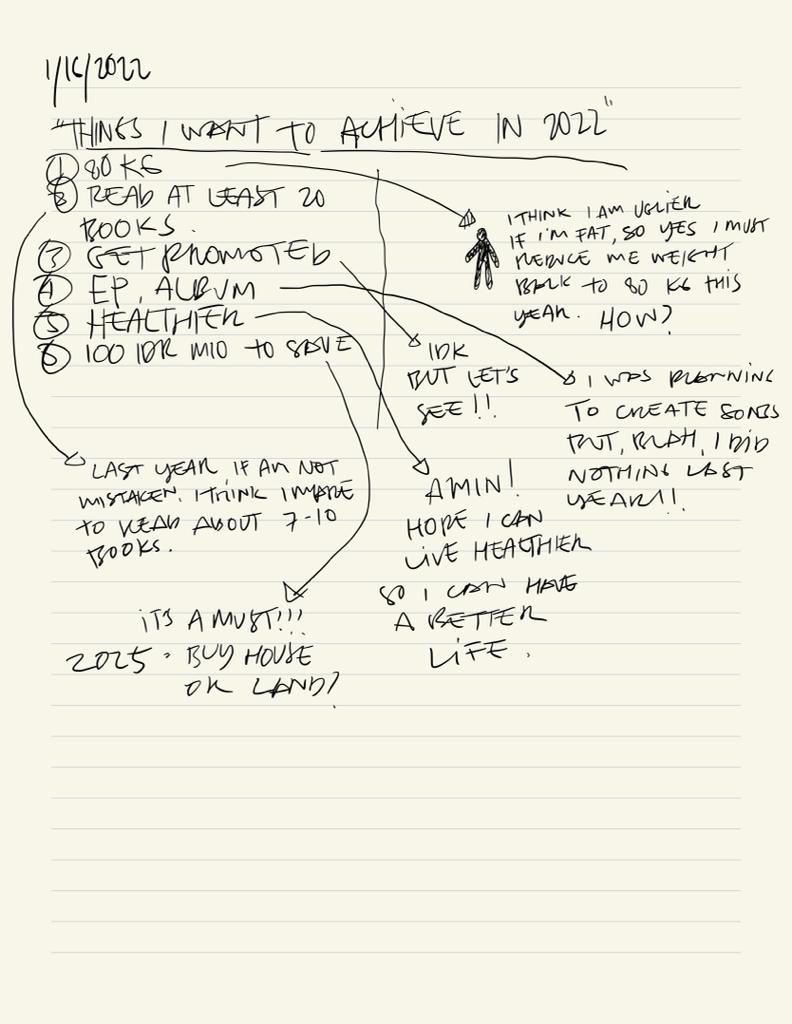 1/16/2022
"THINGS I WANT TO ACHIEVE IN 2022"
① 80 KG
② READ AT LEAST 20
BOOKS.
③ GET PROMOTED
④ EP, ALBUM
⑤ HEALTHIER
⑥ 100 IDR MIO TO SAVE
I THINK I AM UGLIER
IF I'M FAT, SO YES I MUST
REDUCE ME WEIGHT
BACK TO 80 KG THIS
YEAR. HOW?
IDK
BUT LET'S
SEE!!
I WAS PLANNING
TO CREATE SONGS
BUT, BLAH, I DID
NOTHING LAST
YEAR!!
LAST YEAR IF AM NOT
MISTAKEN. I THINK I MADE
TO READ ABOUT 7-10
BOOKS.
AMIN!
HOPE I CAN
LIVE HEALTHIER
SO I CAN HAVE
A BETTER
LIFE.
ITS A MUST!!!
2025: BUY HOUSE
OR LAND?